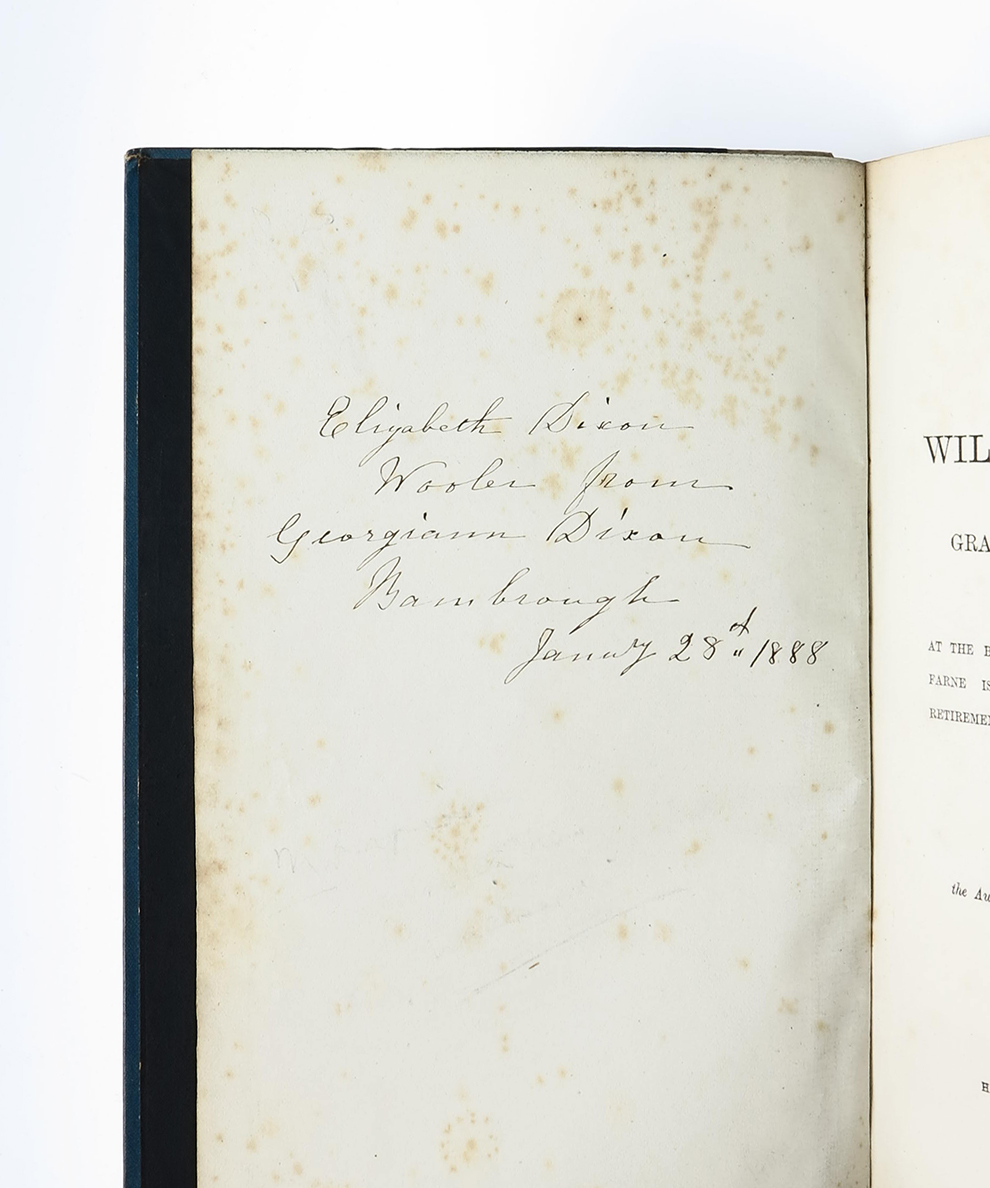 Elizabeth Dixon
Wooler from
Georgiann Dixon
Bambrough
Januy 28 1888
WIL
GRA
AT THE B
FARNE IS
RETIREME
the Au
H